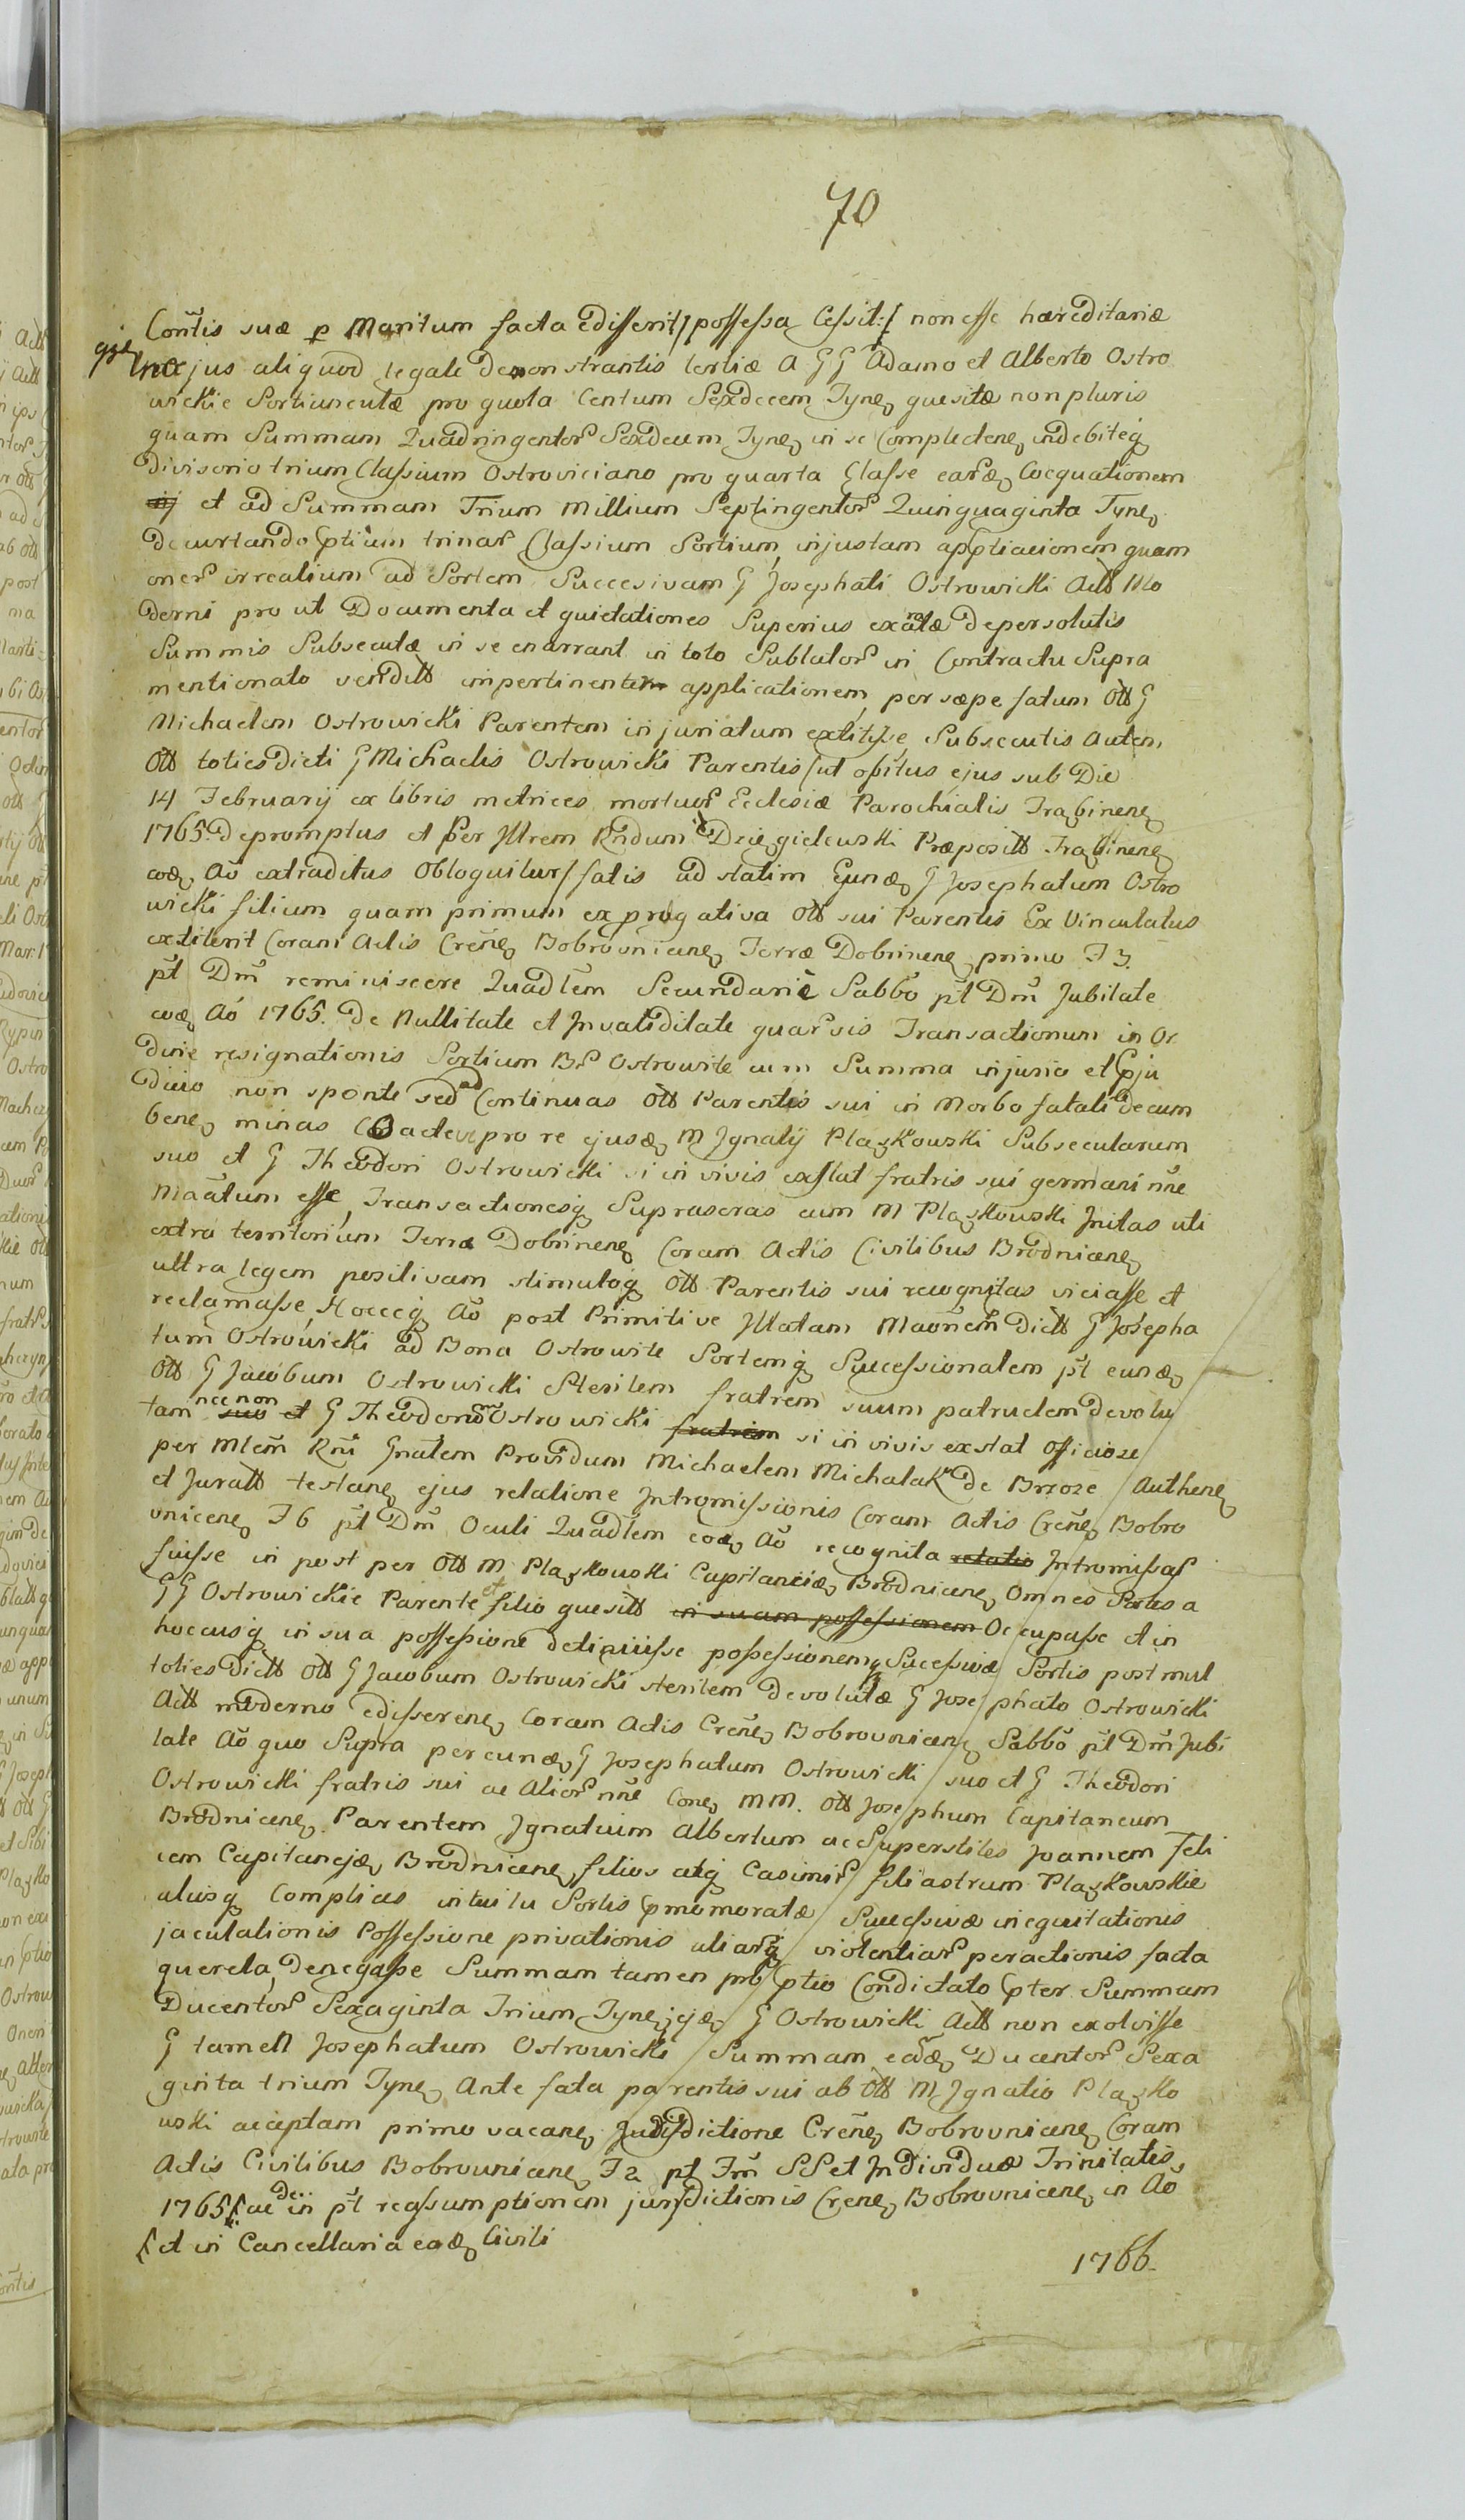 70
Cont̃is suæ p Maritum facta edisserit/ possessa Cessit:/ non esse hæreditariæ
næ jus aliquod legale demonstrantis tertiæ A GG Adamo et Alberto Ostro
wickie Sortiunculæ pro quota Centum Sexdecem Tyne quesitæ non pluris
quam Summam Quadringentor Sexdecem Tyne in se Complectene indebiteq
divisorio trium Classium Ostroviciano pro quarta Classe earde Coequationem
et ad Summam Trium Millium Septingentor Quinquaginta Tyne
decurtando ptium trinar Classium Sortium, injustam appliacionem quam
oner irrealium ad Sortem Succesivam G Josephati Ostrowicki Actt Mo
derni pro ut Documenta et quietationes Superius exaratæ depersolutis
Summis Subsecutæ in se enarrant in toto Sublator in Contractu Supra
mentionato venditt impertinentem applicationem, per sæpe fatum Ott G
Michaelem Ostrowicki Parentem injuriatum extitisse, Subsecutis autem
Ott toties dicti G Michaelis Ostrowicki Parentis /ut obitus ejus sub Die
14 February ex libris metrices mortuor Ecclesiæ Parochialis Trąbinene
1765 depromptus et per Illrem Rndum Dzięgielewski Præpositt Trąbinene
eode Ao extraditus Obloquitur/ fatis ad statim Eunde G Josephatum Ostro
wicki filium quam primum ex progativa Ott sui Parentis Ex Vinculatus
extiterit Coram Actis Creñe Bobrovnicene Terræ Dobrinene primo F 3.
pt Dm̃ reminiscere Quadlem Secundarie Sabbo pt Dm̃ Jubilate
eode Ao 1765. De Nullitate et Invaliditate quar vis Transactionum in Or
dine resignationis Sortium Br Ostrowite cum Summa injuria et pju
dicio non sponte sed ad Continuas Ott Parentis sui in Morbo fatali decum
bene minas Coacte pro re ejusde M Ignatij Plązkowski Subsecutarum
suo et G Theodori Ostrowicki si in vivis exstat fratris sui germani nñe
Maãtum esse, Transactionesq Suprascras cum M Plązkowski Initas uti
extra territorium Terræ Dobrinene Coram Actis Civilibus Brodnicene
ultra legem positivam stimuloq Ott Parentis sui recognitas viciasse et
reclamasse, Hocceq Ao post Primitive Illatam Maoñem dictt G Josepha
tum Ostrowicki ad Bona Ostrowite Sortemq Successionalem pt eunde
Ott G Jacobum Ostrowicki Sterilem fratrem suum patruelem devolu
tam nec non suo et G Theodorum Ostrowicki fratrem si in vivis exstat officiose
per Mlem̃ Rñi Gnalem Providum Michaelem Michalak de Brzoze Authene
et Juratt testane ejus relatione Intromissionis Coram Actis Creñe Bobro
vnicene F 6 pt Dm̃ Oculi Quadlem eode Ao recognita relatio Intromissas
fuisse in post per Ott M. Plązkowski Capitaneide Brodnicene Omnes Partes a
GG Ostrowickie Parente et filio quesitt in suam possessionem Occupasse et in
huccusq in sua possessione detinuisse possessionemq Sucessivæ Sortis post mul
toties dictt Ott G Jacobum Ostrowicki sterilem devolutæ G Josephato Ostrowicki
Actt moderno edisserene Coram Actis Creñe Bobrovnicene Sabbo pt Dm̃ Jubi
late Ao quo Supra per eunde G Josephatum Ostrowicki suo et G Theodori
Ostrowicki fratris sui ac Alior nñe Cone MM. Ott Josephum Capitaneum
Brodnicene Parentem Ignatium Albertum ac Superstites Joannem Feli
cem Capitanejde Brodnicene filios atq Casimir filiastrum Plązkowskie
aliisq Complices intuitu Sortis pmemoratæ Successivæ inequitationis
jaculationis Possessione privationis aliarq violentiar peractionis facta
querela, Denegasse Summam tamen pro ptio Condictato pter Summam
Ducentor Sexaginta Trium Tyne G Ostrowicki Actt non exolvisse
G tamen Josephatum Ostrowicki Summam eande Ducentor Sexa
ginta trium Tyne Ante fata parentis sui ab Ott M Ignatio Plązko
wski acceptam primo vacane Jurisdictione Creñe Bobrovnicene Coram
Actis Civilibus Bobrovnicene F 2 pt Fm̃ SS et Individuæ Trinitatis,
1765 ac dein pt reassumptionem jurisdictionis Creñe Bobrovnicene in Ao
et in Cancellaria eade Civili
1766